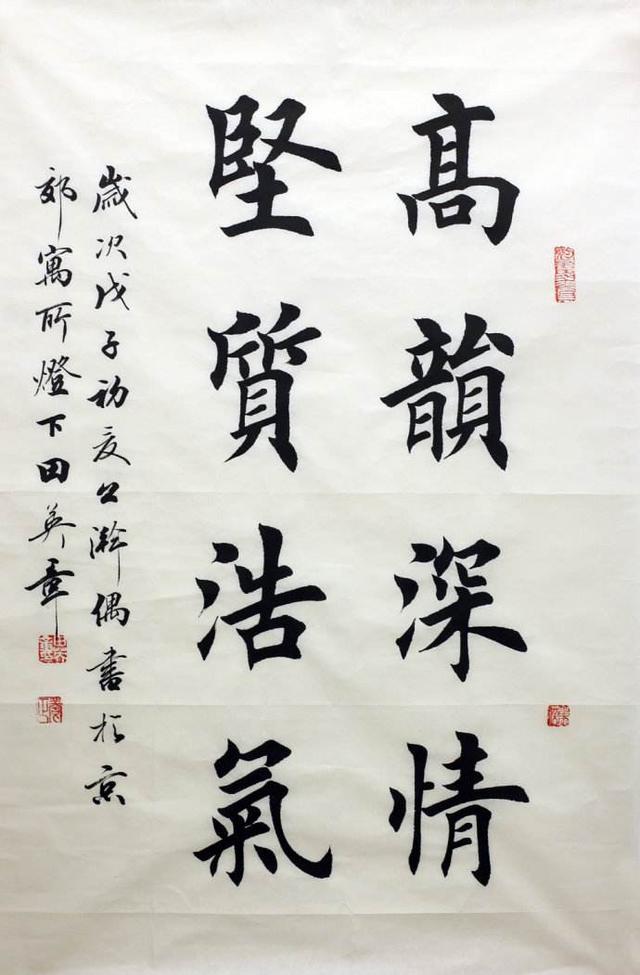 高韻深情
堅質浩氣
歲次戊子初夏公瀚偶書於京
郊寓所燈下田英章